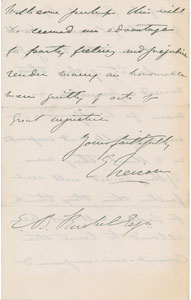 With some perhaps, this will
be deemed an advantage
for party feeling and prejudice
render many an honourable
man guilty of acts of
great injustice.
Yours faithfully
E. B. Esqr.